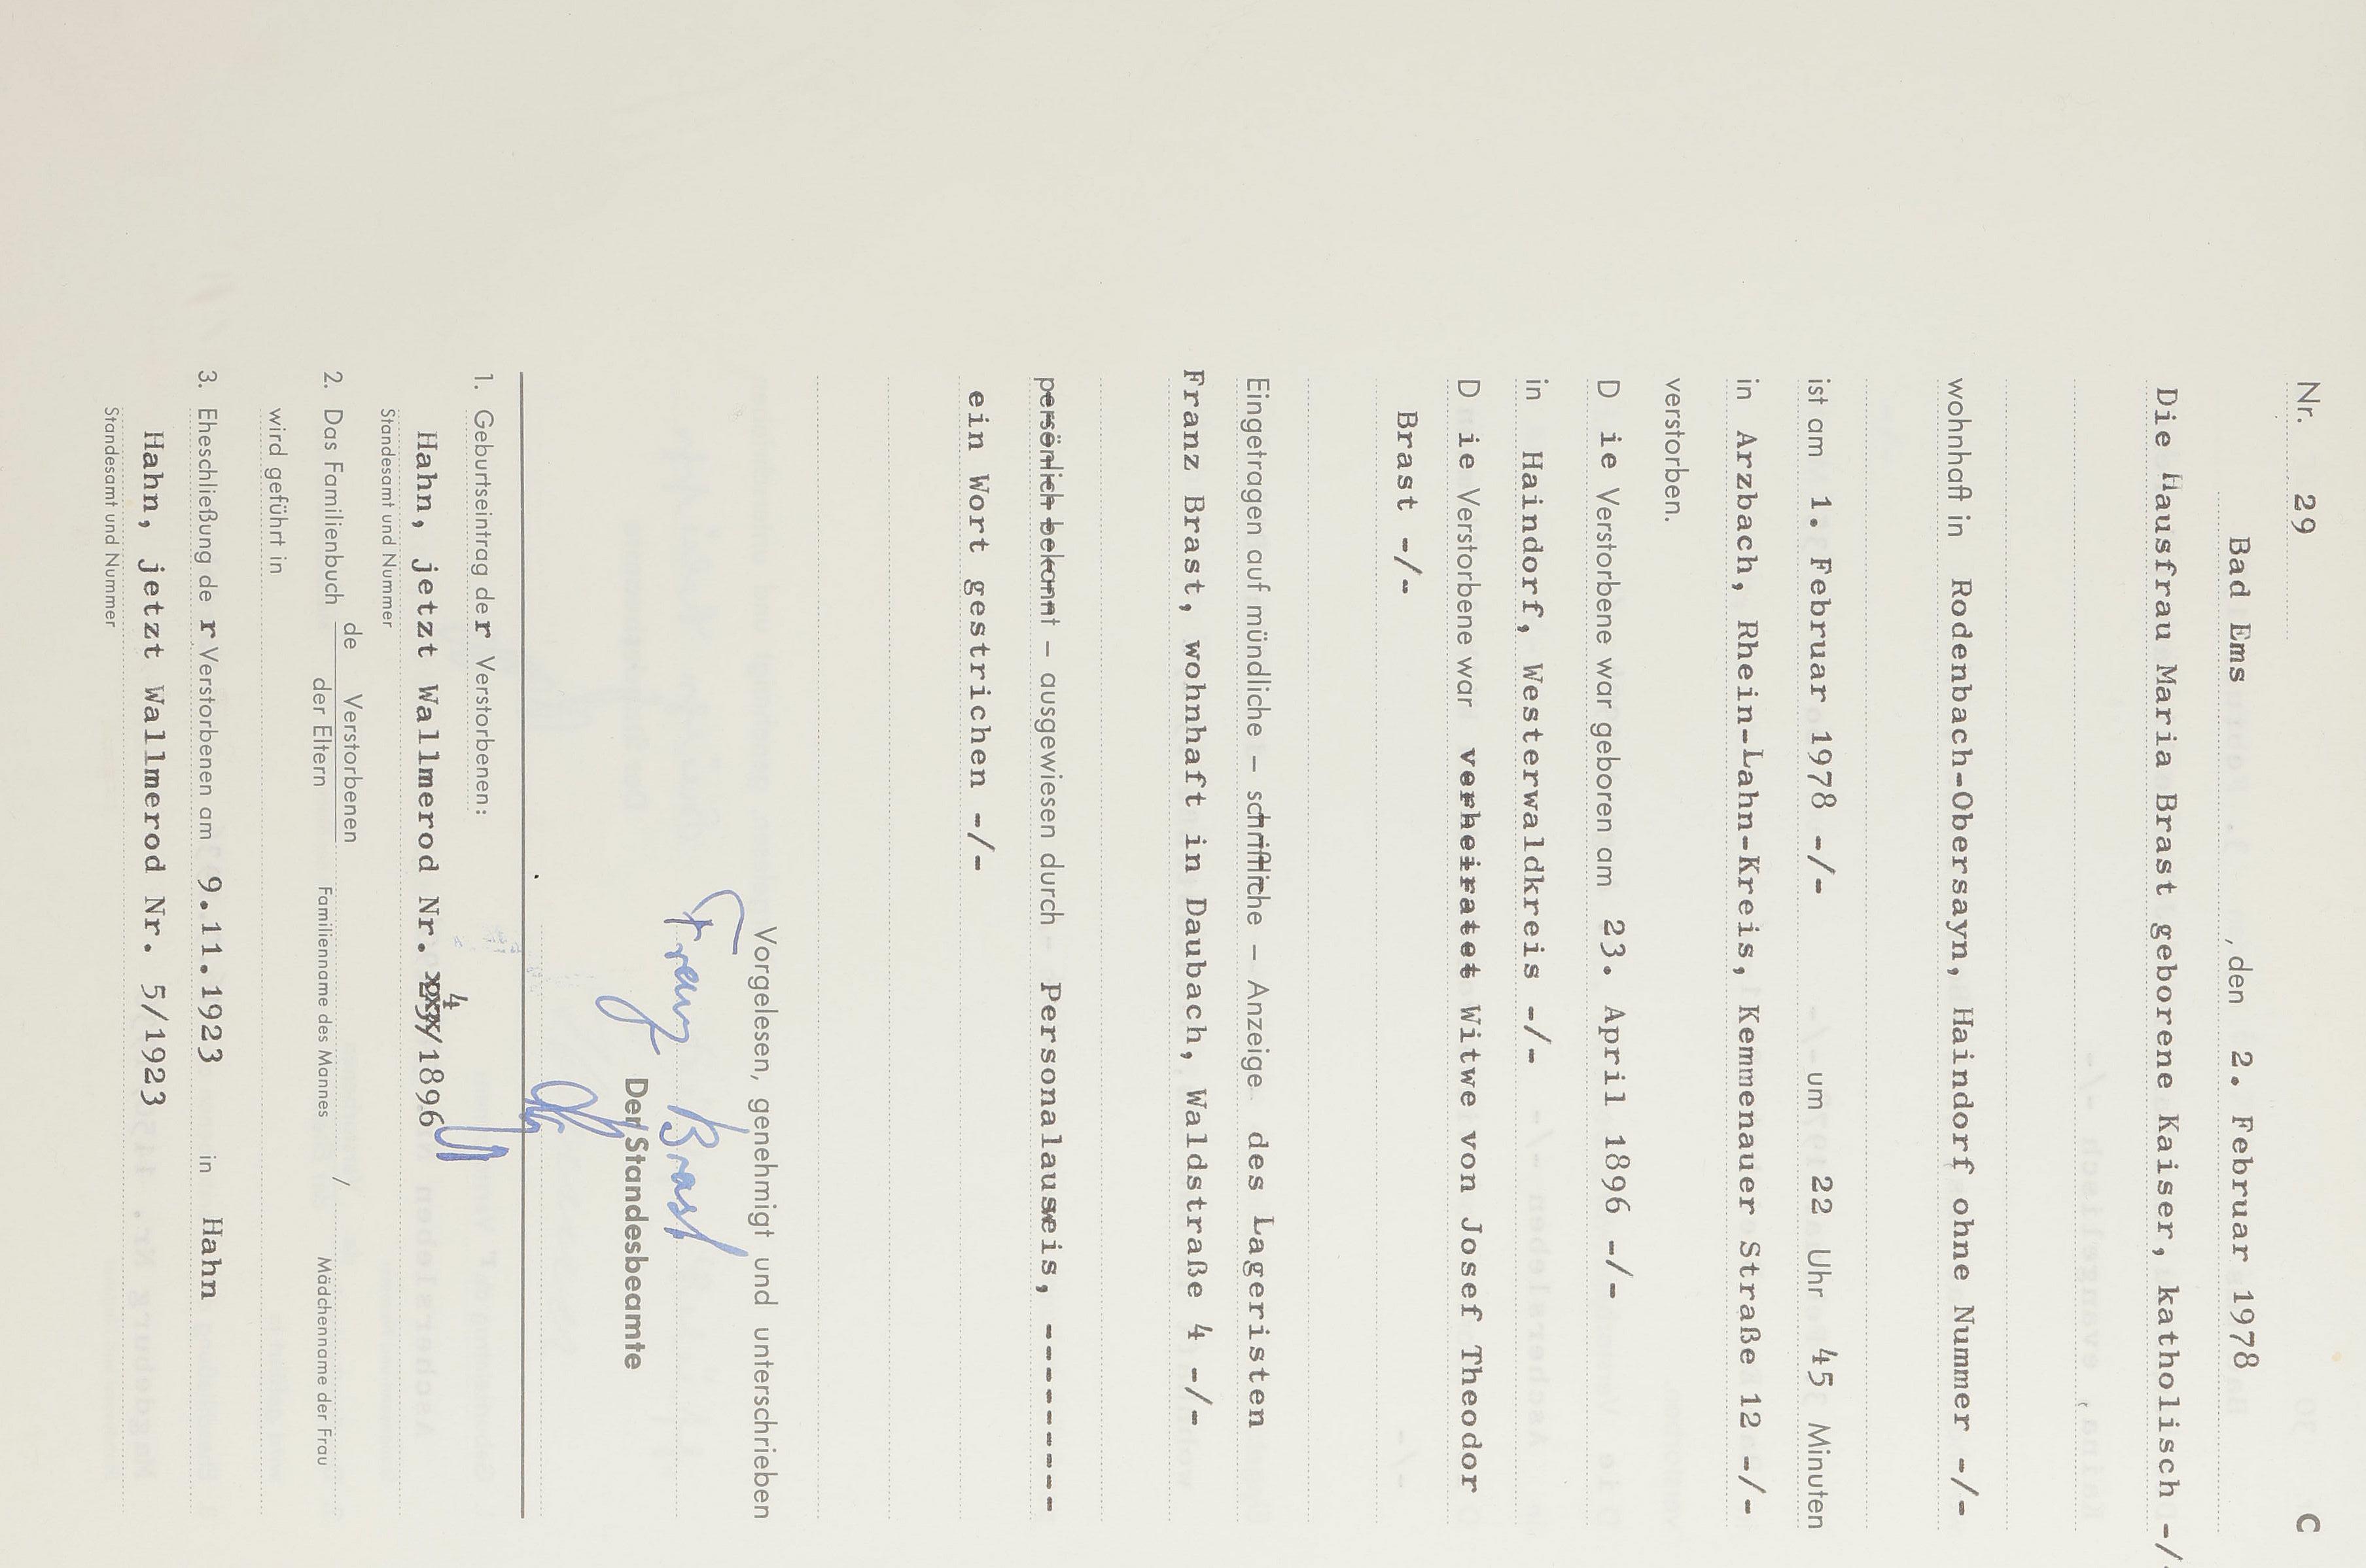 Nr. 29 C
Bad Ems , den 2. Februar 1978
Die Hausfrau Maria Brast geborene Kaiser, katholisch -/
wohnhaft in Rodenbach-Obersayn, Haindorf ohne Nummer -/-
ist am 1. Februar 1978 -/- um 22 Uhr 45 Minuten
in Arzbach, Rhein-Lahn-Kreis, Kemmenauer Straße 12 -/-
verstorben.
D ie Verstorbene war geboren am 23. April 1896 -/-
in Haindorf, Westerwaldkreis -/-
D ie Verstorbene war verheiratet Witwe von Josef Theodor
Brast -/-
Eingetragen auf mündliche – schriftliche – Anzeige des Lageristen
Franz Brast, wohnhaft in Daubach, Waldstraße 4 -/-
persönlich bekannt – ausgewiesen durch Personalausweis, - - - - - - - -
ein Wort gestrichen -/-
Vorgelesen, genehmigt und unterschrieben
Franz Brast
Der Standesbeamte
1. Geburtseintrag de r Verstorbenen:
Hahn, jetzt Wallmerod Nr. 4/1896
Standesamt und Nummer
2. Das Familienbuch de Verstorbenen / der Eltern
Familienname des Mannes / Mädchenname der Frau
wird geführt in
3. Eheschließung de r Verstorbenen am 9.11.1923 in Hahn
Hahn, jetzt Wallmerod Nr. 5/1923
Standesamt und Nummer